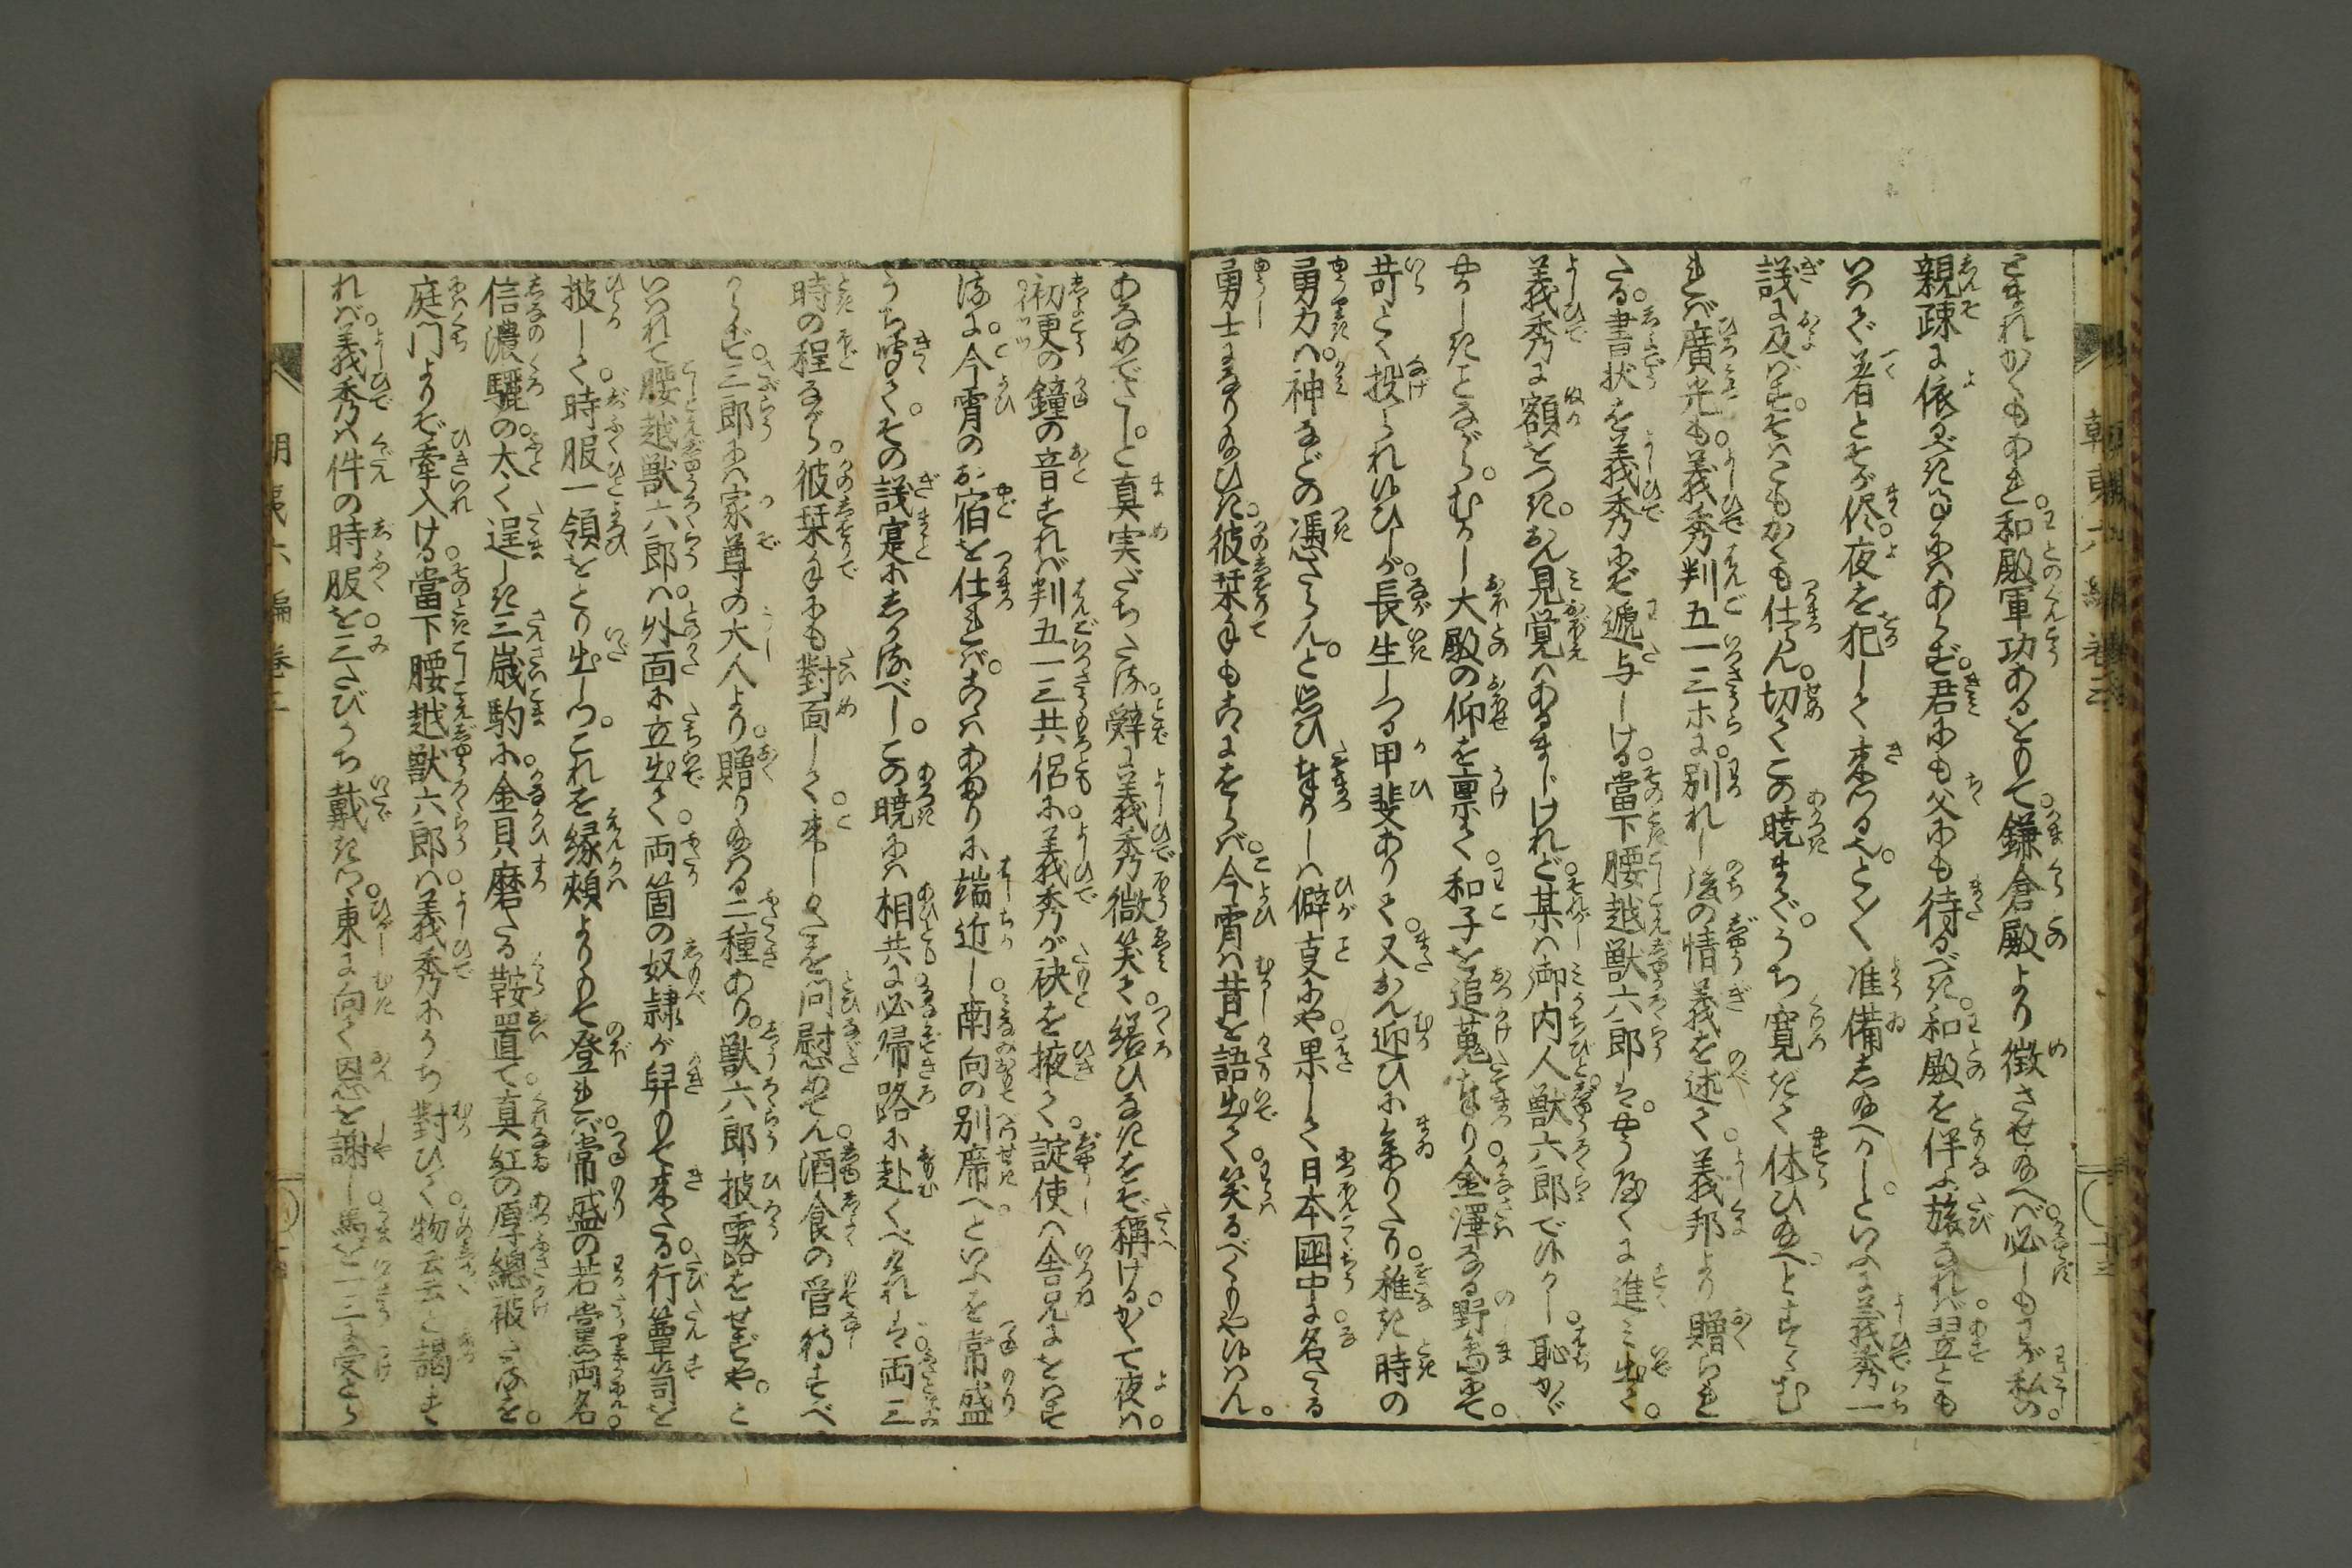 とまれかくもあれ。和殿軍功あるをもて。鎌倉殿より徴させ給へば。必しもわが私の。
親疎に依るべきにはあらず。君にも父にも待るべき。和殿を伴ふ旅なれば。翌とも
いはで着とそが侭。夜を犯して来つるへ。とく〳〵准備し給へかしといふに義秀一
議に及ばず。そはともかくも仕らん。切てこの暁まで。うち寛ぎて休ひ給へとすゝむ
れば廣光も。義秀判五一三ホに。別れし後の情義を述て。義邦より贈られ
たる。書状を義秀にぞ逓与しける。當下腰越獣六郎は。やうやくに進み出て。
義秀に額をつき。おん見覚はあるまじけれど。某は御内人獣六郎で候かし。恥かゞ
やかしきことながら。むかし大殿の仰を稟て。和子を追蒐奉り。金澤なる野嶌にて。
苛く投られ候ひしが。長生しつる甲斐ありて。又おん迎ひに参りたり。稚き時の
勇力は。神などの憑たらん。と思ひ奉りしは僻事にや。果して日本国中に名たる
勇士になり給ひき。彼栞手も古にをらば。今宵は昔を語出て。笑るべくもや候はん。
あなめでたし。と真実だちたる。辞に義秀微笑て。繕ひなきをぞ稱ける。かくて夜は。
初更の鐘の音すれば判五一三共侶に。義秀が袂を掖て。誼使は舎兄にをはす
るに。今宵のお宿を仕れば。古はあまりに端近し。南向の別席へといふを常盛
うち聞て。その議寔にしかるべし。この暁には相共に必帰路に赴くべけれは。両三
時の程ながら。彼栞手にも對面して。来しかたを問慰めてん。酒食の管待すべ
からず。三郎には家尊の大人より。贈り給はる二種あり。獣六郎披露をせずや。と
いはれて腰越獣六郎は。外面に立出て。両箇の奴隷が舁もて来たる。行箪笥を
披して。時服一領をとり出しつ。これを縁頬よりもて登れば。常盛の若黨両名。
信濃驪の。太く逞しき三歳駒に。金貝磨たる鞍置て。真紅の厚總被たるを。
庭門よりぞ牽入ける。當下腰越獣六郎は。義秀にうち對ひて。物云云と謁す
れば。義秀は件の時服を。三たびうち戴きつ。東に向て恩を謝し。馬を一三に受とら
朝夷六編巻三